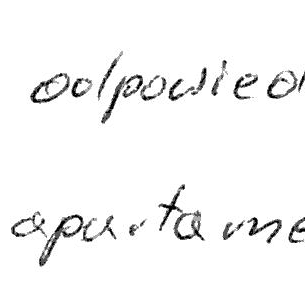 odpowied
apartame